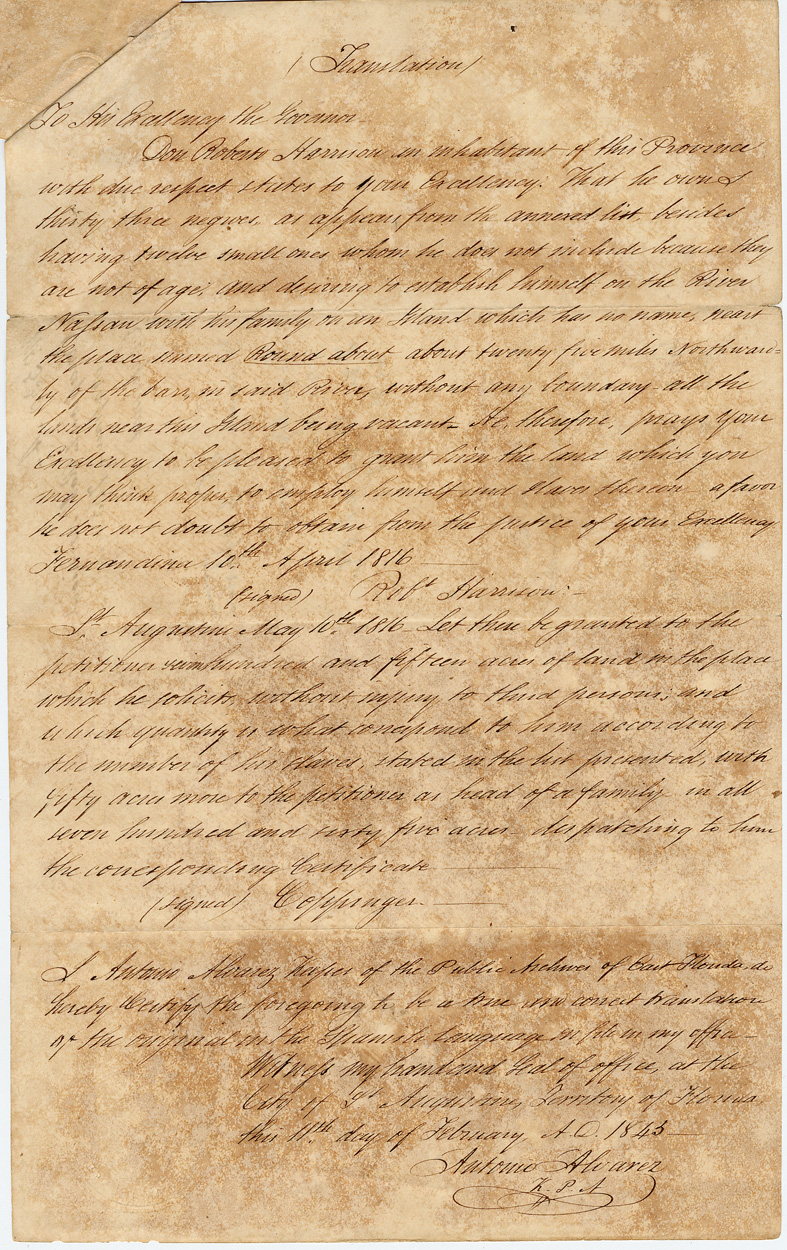 (Translation)
To His Excellency the Govenor—
Don Roberto Harrison an inhabitant of this Province
with due respect states to your Excellency: That he owns
thirty three negroes, as appears from the annexed list besides
having twelve small ones whom he does not include because they
are not of age; and desiring to establish himself on the River
Nassau with his family on an Island which has no name, near
the place named Round about about twenty five miles Northward=
ly of the bar, in said River, without any boundary all the
lands near this Island being vacant— He, therefore, prays Your
Excellency to be pleased to grant him the land which you
may think proper to employ himself and slaves thereon a favor
he does not doubt to obtain from the justice of your Excellency
Fernandina 10th April 1816 —
(signed) Robt Harrison:—
St. Augustine May 10th 1816— Let there be granted to the
petitioner hundred and fifteen acres of land in the place
which he solicits, without injury to third persons; and
which quantity is what correspond to him according to
the number of his slaves, stated in the list presented, with
fifty acres more to the petitioner as head of a family in all
seven hundred and sixty five acres— despatching to him
the corresponding Certificate —
(signed) Coppinger —
I Antonio Alvarez Keeper of the Public Archives of East Florida, do
hereby Certify the foregoing to be a true and correct translation
of the original in the Spanish Language on file in my office—
Witness my hand and Seal of office, at the
City of St Augustine, Territory of Florida
this 11th day of February, A.D. 1843—
Antonio Alvarez
K. P. A